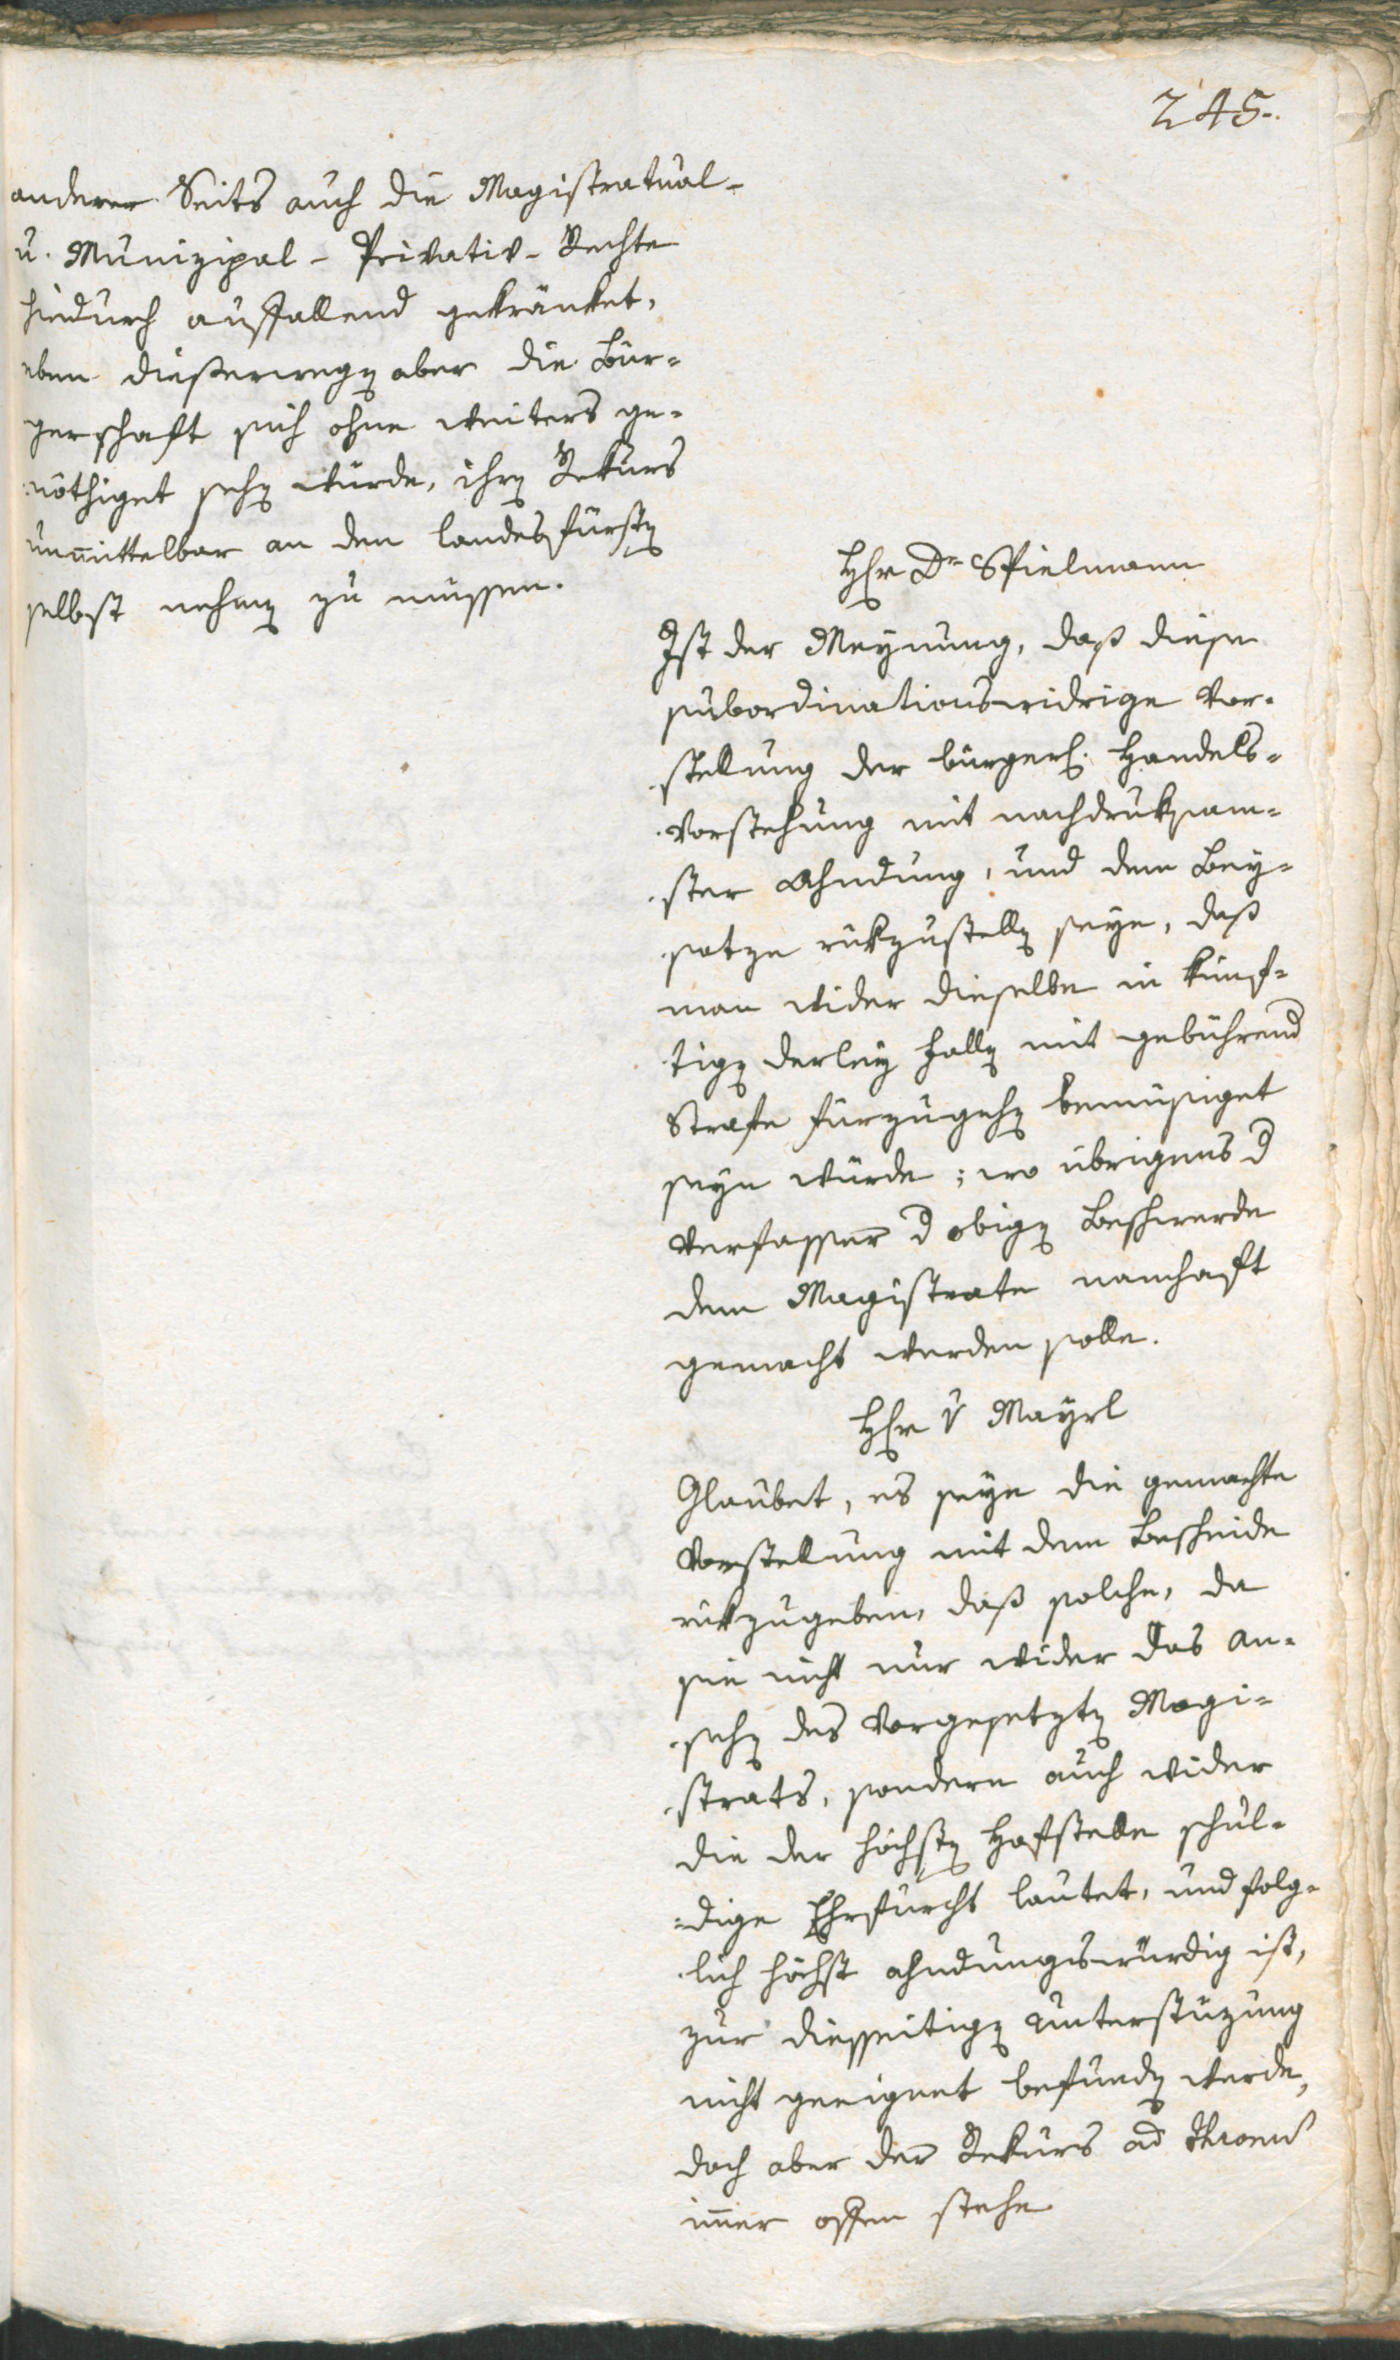 245.
anderer Seits auch die Magistratual-
u. Munizipal- Privativ- Rechte
hiedurch auffallend gekränket,
eben dießerwegen aber die Bür-
gerschaft sich ohne weiters ge-
nöthiget sehen würde, ihren Rekurs
unmittelbar an den Landesfürsten
selbst nehmen zu müssen.
Herr Dr Spielmann
Ist der Meynung, daß diese
subordinationswidrige Vor-
stellung der bürgerl. Handels-
Vorstehung mit nachdruksam-
ster Ahndung, und dem Bey-
satze rükzustellen seye, daß
man wider dieselbe in künf-
tigen derley Fällen mit gebührend
Strafe fürzugehen bemüsiget
seyn würde; wo übrigens d
Verfasser d obigen Beschwerde
dem Magistrate namhaft
gemacht werden solle.
Herr v Mayrl
Glaubet, es seye die gemachte
Vorstellung mit dem Bescheide
rükzugeben, daß solche, da
sie nicht nur wider das An-
sehen des Vorgesetzten Magi-
strats, sondern auch wider
die der höchsten Hofstelle schul-
dige Ehrfurcht lautet, und folg-
lich höchst ahndungswürdig ist,
zur diesseitigen Unterstüzung
nicht geeignet befunden werde,
doch aber der Rekurs ad thronum
immer offen stehe